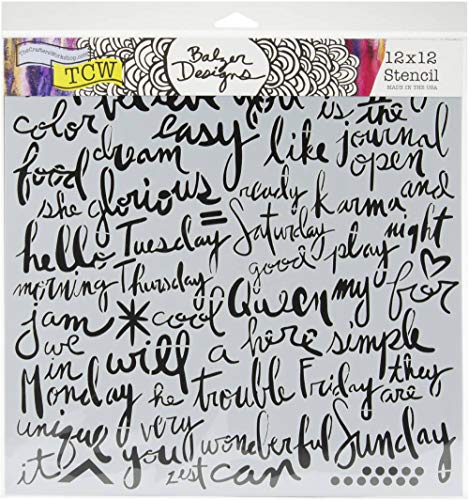 TheCraftersWorkshop.com
TCW
Balzer Designs
12x12
Stencil
MADE IN THE USA
you is the
color easy like journal
dream open
food she glorious ready karma and
hello Tuesday = Saturday night
good play
morning Thursday
jam * cool Queen my for
we will a here simple
in
Monday he trouble Friday they
are
unique very
you wonderful Sunday
it zest can